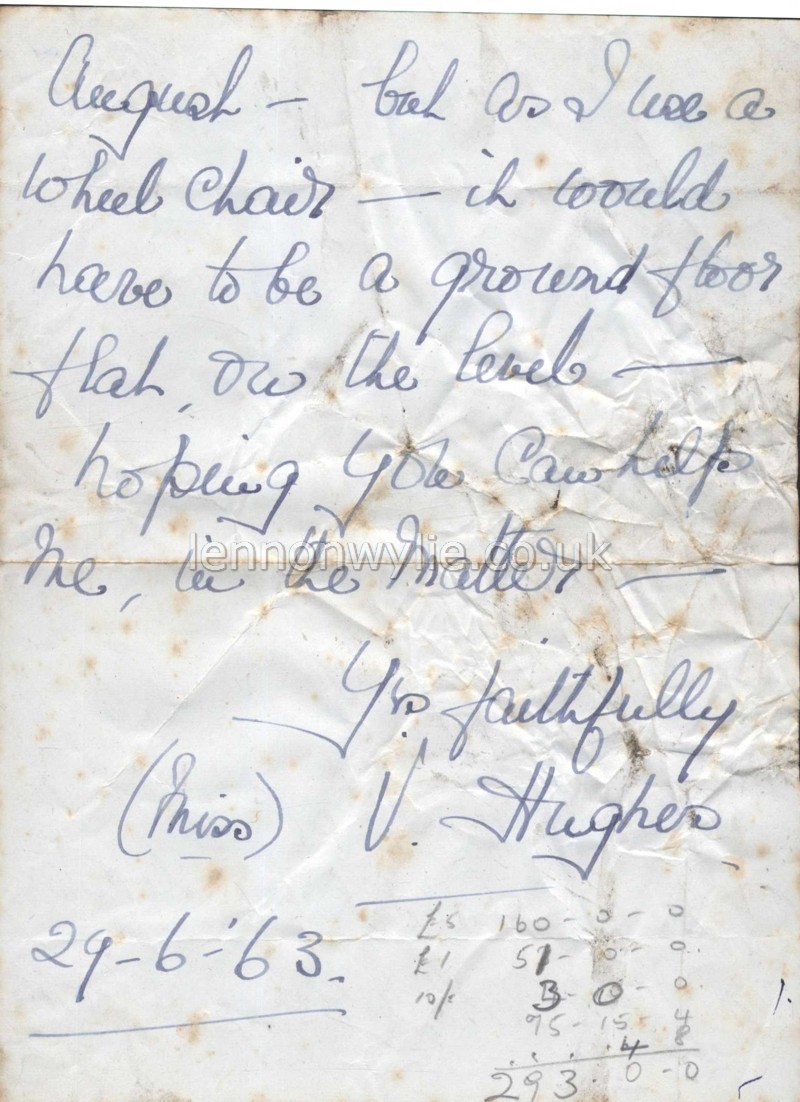 August – but as I use a
wheel chair – it would
have to be a ground floor
flat, on the level –
hoping you can help
me, in the matter –
lennonwylie.co.uk
Yrs faithfully
(Miss) V. Hughes
29-6-'63.
£5 160-0-0
£1 51-0-0
10/- 3-0-0
-15-4
4 8
293.0-0